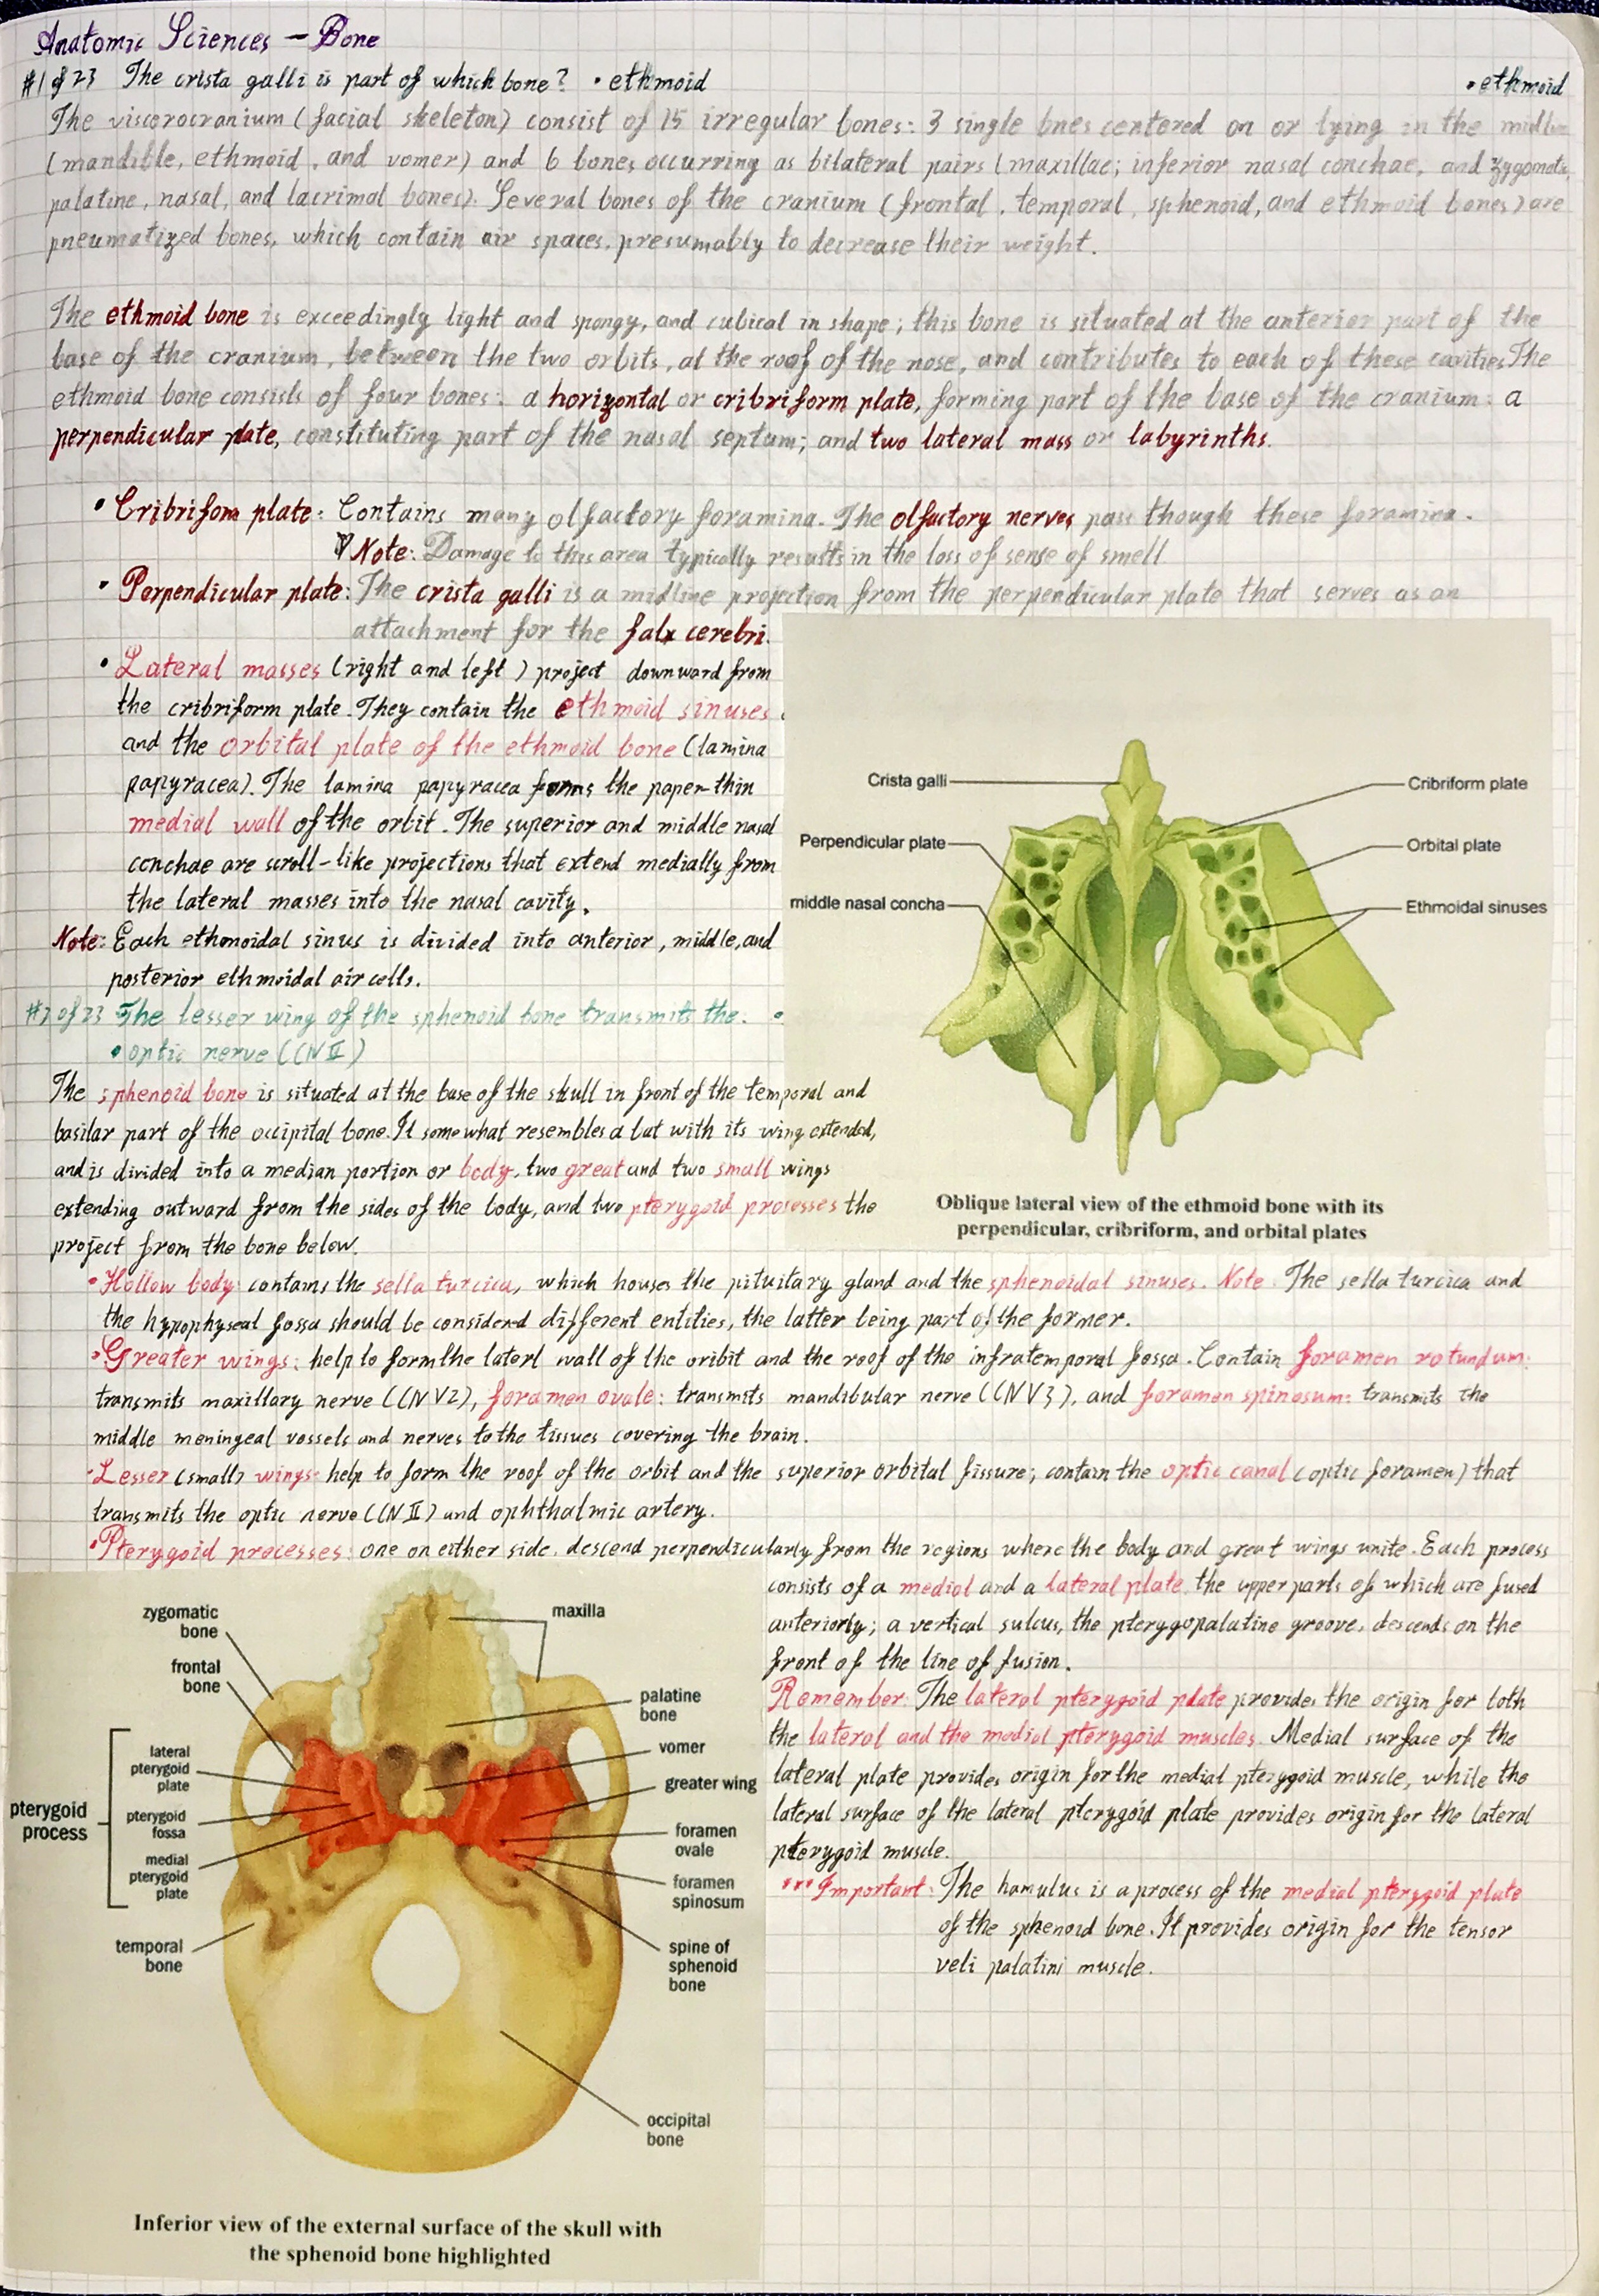 Anatomic Sciences - Bone
#1 of 23 The crista galli is part of which bone? • ethmoid •ethmoid
The viscerocranium (facial skeleton) consist of 15 irregular bones: 3 single bnes centered on or lying in the
(mandible, ethmoid, and vomer) and 6 bones occurring as bilateral pairs (maxillae; inferior nasal conchae, and
palatine, nasal, and lacrimal bones). Several bones of the cranium (frontal, temporal, sphenoid, and ethmoid bones) are
pneumatized bones, which contain air spaces, presumably to decrease their weight.
The ethmoid bone is exceedingly light and spongy, and cubical in shape; this bone is situated at the anterior part of the
base of the cranium, between the two orbits, at the roof of the nose, and contributes to each of these cavities. The
ethmoid bone consists of four bones: a horizontal or cribriform plate, forming part of the base of the cranium: a
perpendicular plate, constituting part of the nasal septum; and two lateral mass or labyrinths.
• Cribrifom plate: Contains many olfactory foramina. The olfactory nerves pass though these foramina.
Note: Damage to this area typically results in the loss of sense of smell
• Perpendicular plate: The crista galli is a midline projection from the perpendicular plate that serves as an
attachment for the falx cerebri.
• Lateral masses (right and left) project downward from
the cribriform plate. They contain the ethmoid sinuses
and the orbital plate of the ethmoid bone (lamina
papyracea). The lamina papyracea forms the paper-thin
medial wall of the orbit. The superior and middle nasal
conchae are scroll-like projections that extend medially from
the lateral masses into the nasal cavity.
Note: Each ethonoidal sinus is divided into anterior, middle, and
posterior ethmoidal air cells.
Crista galli
Perpendicular plate
middle nasal concha
Cribriform plate
Orbital plate
Ethmoidal sinuses
Oblique lateral view of the ethmoid bone with its
perpendicular, cribriform, and orbital plates
#2 of 23 The lesser wing of the sphenoid bone transmits the: •
• optic nerve (CN II)
The sphenoid bone is situated at the base of the skull in front of the temporal and
basilar part of the occipital bone. It somewhat resembles a bat with its wing extended,
and is divided into a median portion or body, two great and two small wings
extending outward from the sides of the body, and two pterygoid processes the
project from the bone below.
• Hollow body: contains the sella turcica, which houses the pituitary gland and the sphenoidal sinuses. Note: The sella turcica and
the hypophyseal fossa should be considered different entities, the latter being part of the former.
• Greater wings: help to form the laterl wall of the oribit and the roof of the infratemporal fossa. Contain foramen rotundum:
transmits maxillary nerve (CN V2), foramen ovale: transmits mandibular nerve (CN V3), and foramen spinosum: transmits the
middle meningeal vessels and nerves to the tissues covering the brain.
• Lesser (small) wings: help to form the roof of the orbit and the superior orbital fissure; contain the optic canal (optic foramen) that
transmits the optic nerve (CN II) and ophthalmic artery.
• Pterygoid processes: one on either side, descend perpendicularly from the regions where the body and great wings unite. Each process
consists of a medial and a lateral plate, the upper parts of which are fused
anteriorly; a vertical sulcus, the pterygopalatine groove, descends on the
front of the line of fusion.
Remember: The lateral pterygoid plate provides the origin for both
the lateral and the medial pterygoid muscles. Medial surface of the
lateral plate provides origin for the medial pterygoid muscle, while the
lateral surface of the lateral pterygoid plate provides origin for the lateral
pterygoid muscle.
***Important: The hamulus is a process of the medial pterygoid plate
of the sphenoid bone. It provides origin for the tensor
veli palatini muscle.
zygomatic
bone
frontal
bone
lateral
pterygoid
plate
pterygoid
process
pterygoid
fossa
medial
pterygoid
plate
temporal
bone
maxilla
palatine
bone
vomer
greater wing
foramen
ovale
foramen
spinosum
spine of
sphenoid
bone
occipital
bone
Inferior view of the external surface of the skull with
the sphenoid bone highlighted